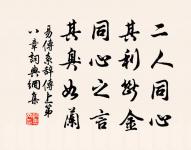 二人同心
其利斷金
同心之言
其臭如蘭
易傳系辭傳上第
八章詞典網集